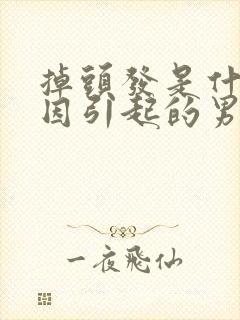 掉頭發是什
因引起的男
一夜飛仙